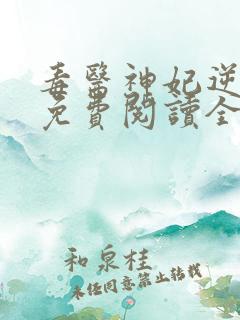 毒醫神妃逆
免費閱讀全
和泉桂
未任同意禁止轉載